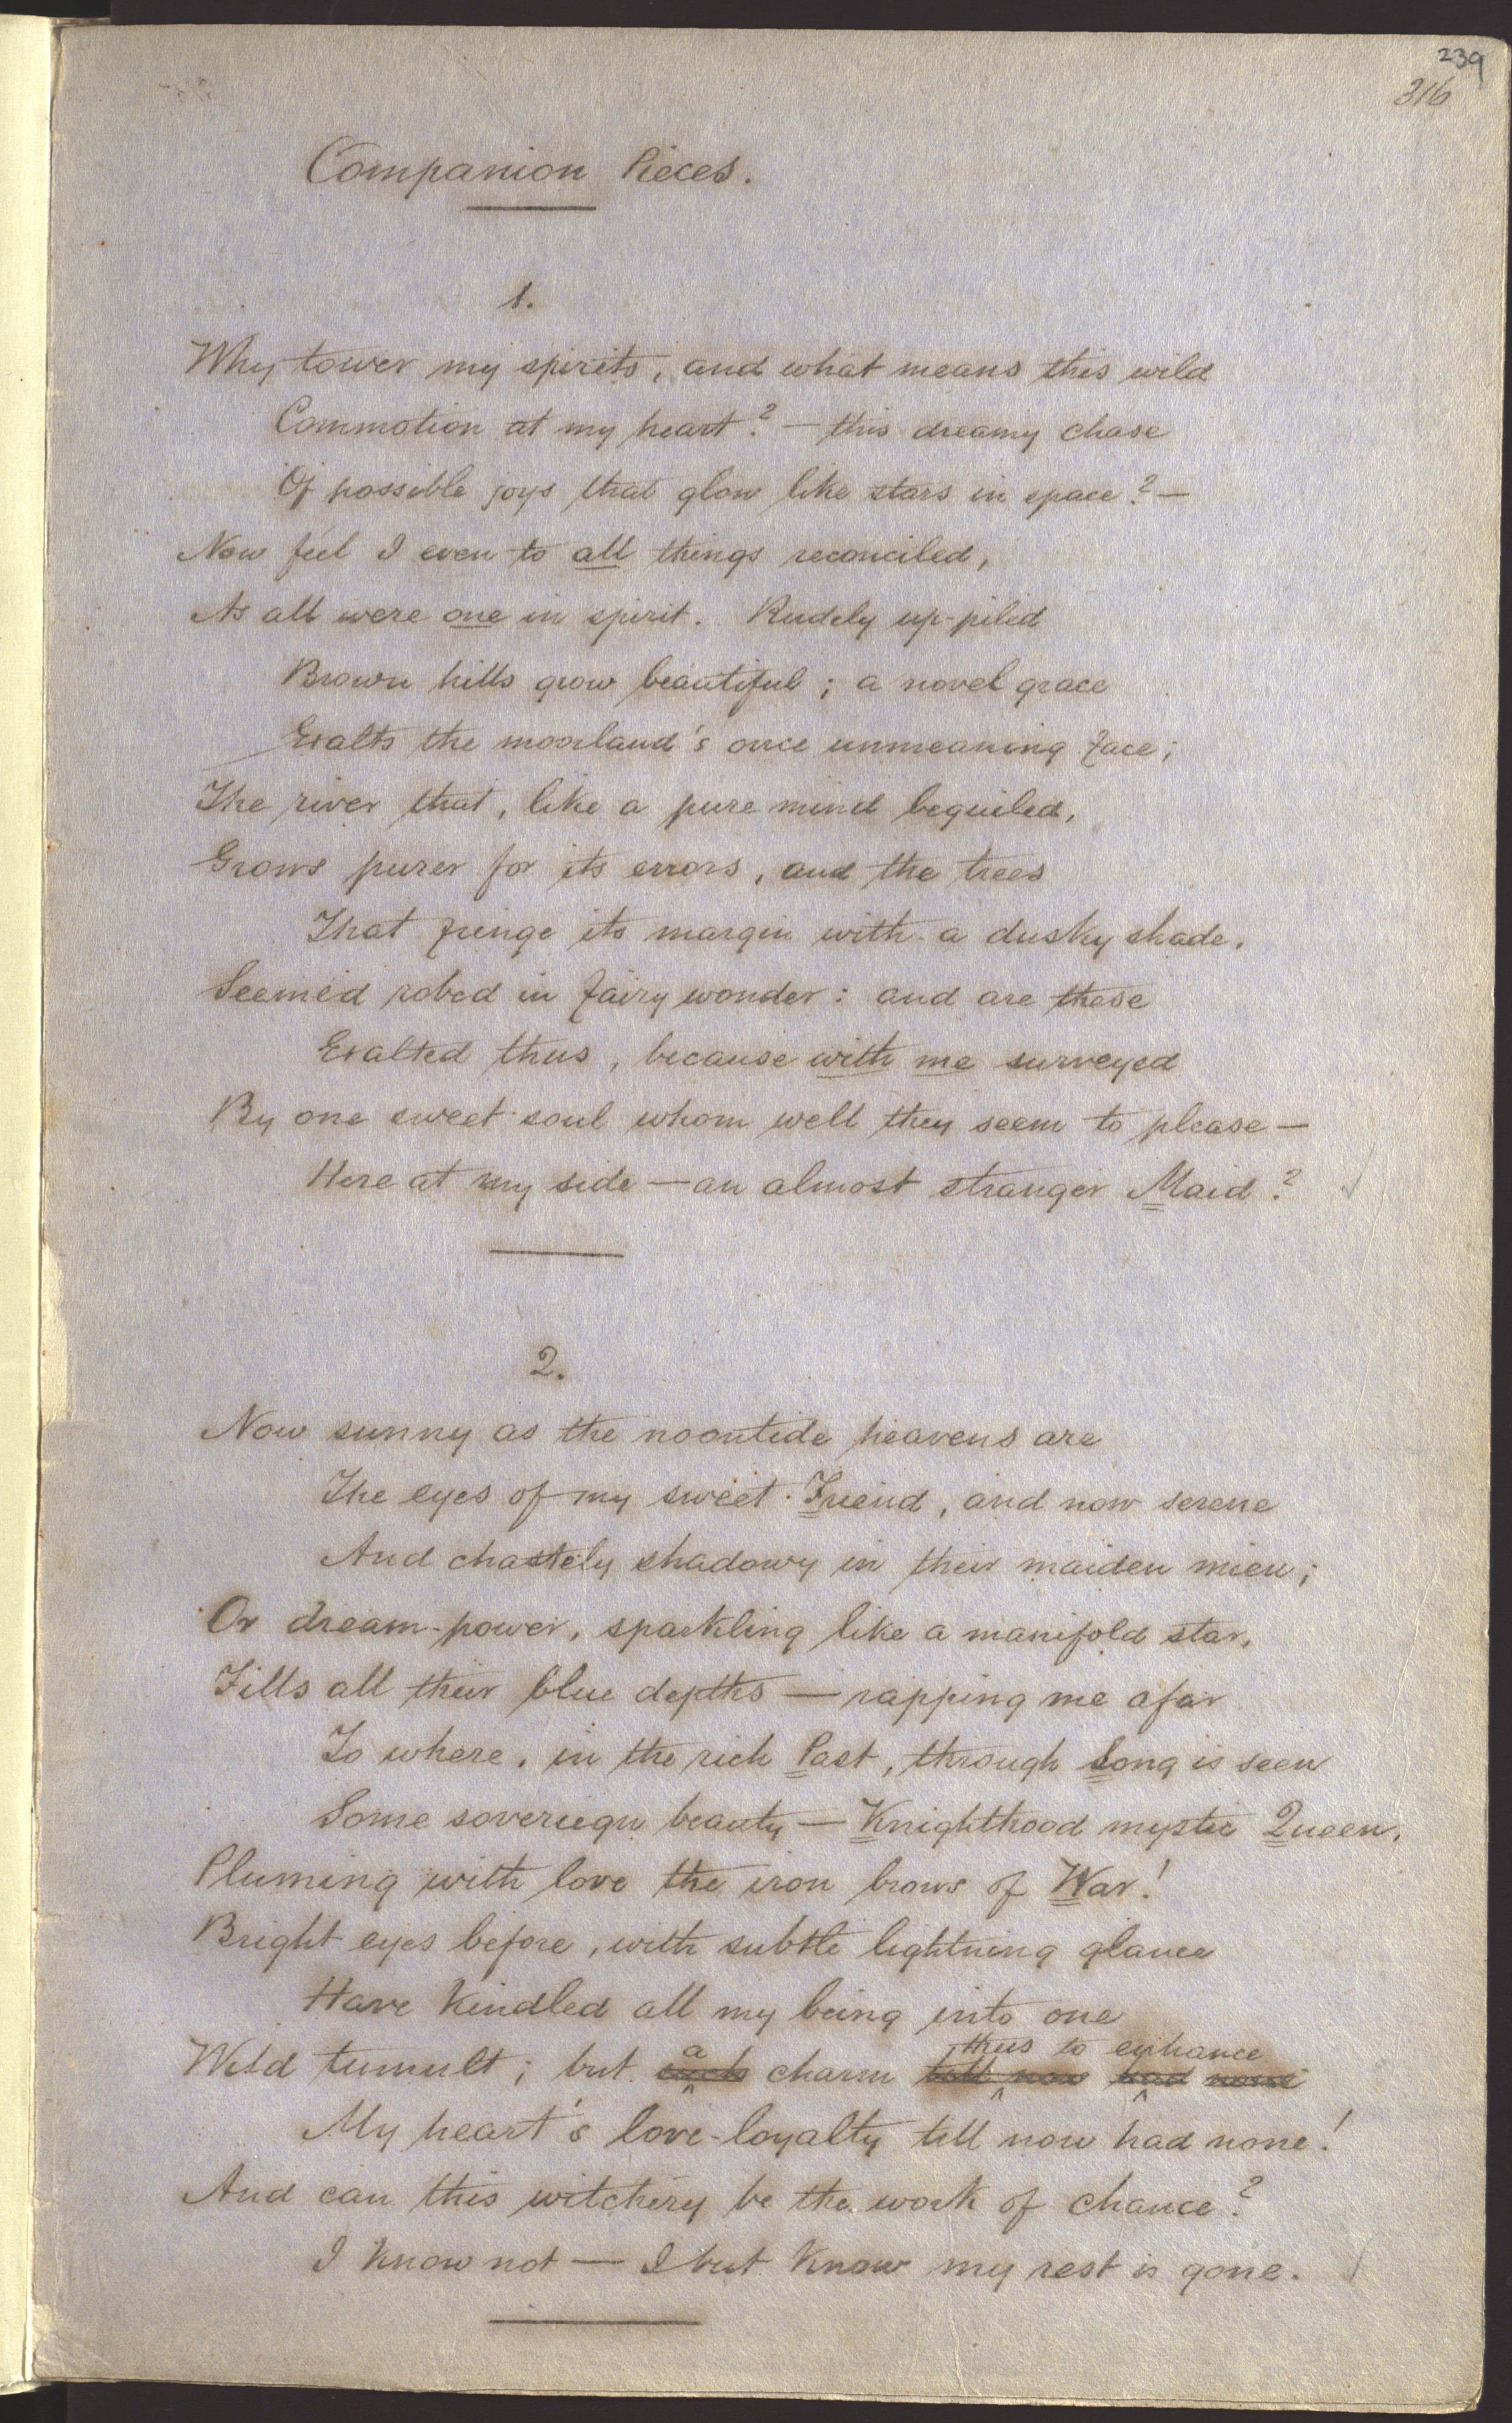 239
316
Companion Pieces.
1.
Why tower my spirits, and what means this wild
Commotion at my heart? — this dreamy chase
Of possible joys that glow like stars in space? —
Now feel I even to all things reconciled,
As all were one in spirit. Rudely up-piled
Brown hills grow beautiful; a novel grace
Exalts the moorland's once unmeaning face;
The river that, like a pure mind beguiled,
Grows purer for its errors, and the trees
That fringe its margin with a dusky shade,
Seemed robed in fairy wonder: and are these
Exalted thus, because with me surveyed
By one sweet soul whom well they seem to please —
Here at my side — an almost stranger Maid?
2.
Now sunny as the noontide heavens are
The eyes of my sweet Friend, and now serene
And chastely shadowy in their maiden mien;
Or dream-power, sparkling like a manifold star,
Fills all their blue depths — rapping me afar
To where, in the rich Past, through Song is seen
Some soveriegn beauty — Knighthood mystic Queen,
Pluming with love the iron brows of War!
Bright eyes before, with subtle lightning glance
Have kindled all my being into one
thus to enhance
Wild tumult; but such a charm till now had none
My heart's love-loyalty till now had none!
And can this witchery be the work of chance?
I know not — I but know my rest is gone.